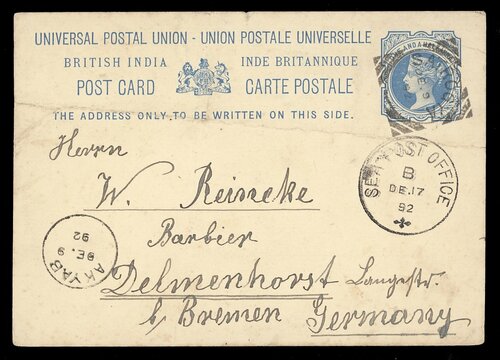 UNIVERSAL POSTAL UNION - UNION POSTALE UNIVERSELLE
BRITISH INDIA INDE BRITANNIQUE
POST CARD CARTE POSTALE
THE ADDRESS ONLY TO BE WRITTEN ON THIS SIDE.
Herrn
W. Reineke
Barbier
Delmenhorst Langestr.
b/ Bremen Germany
SEA POST OFFICE
B
DE.17
92
AKYAB
DE. 9
92